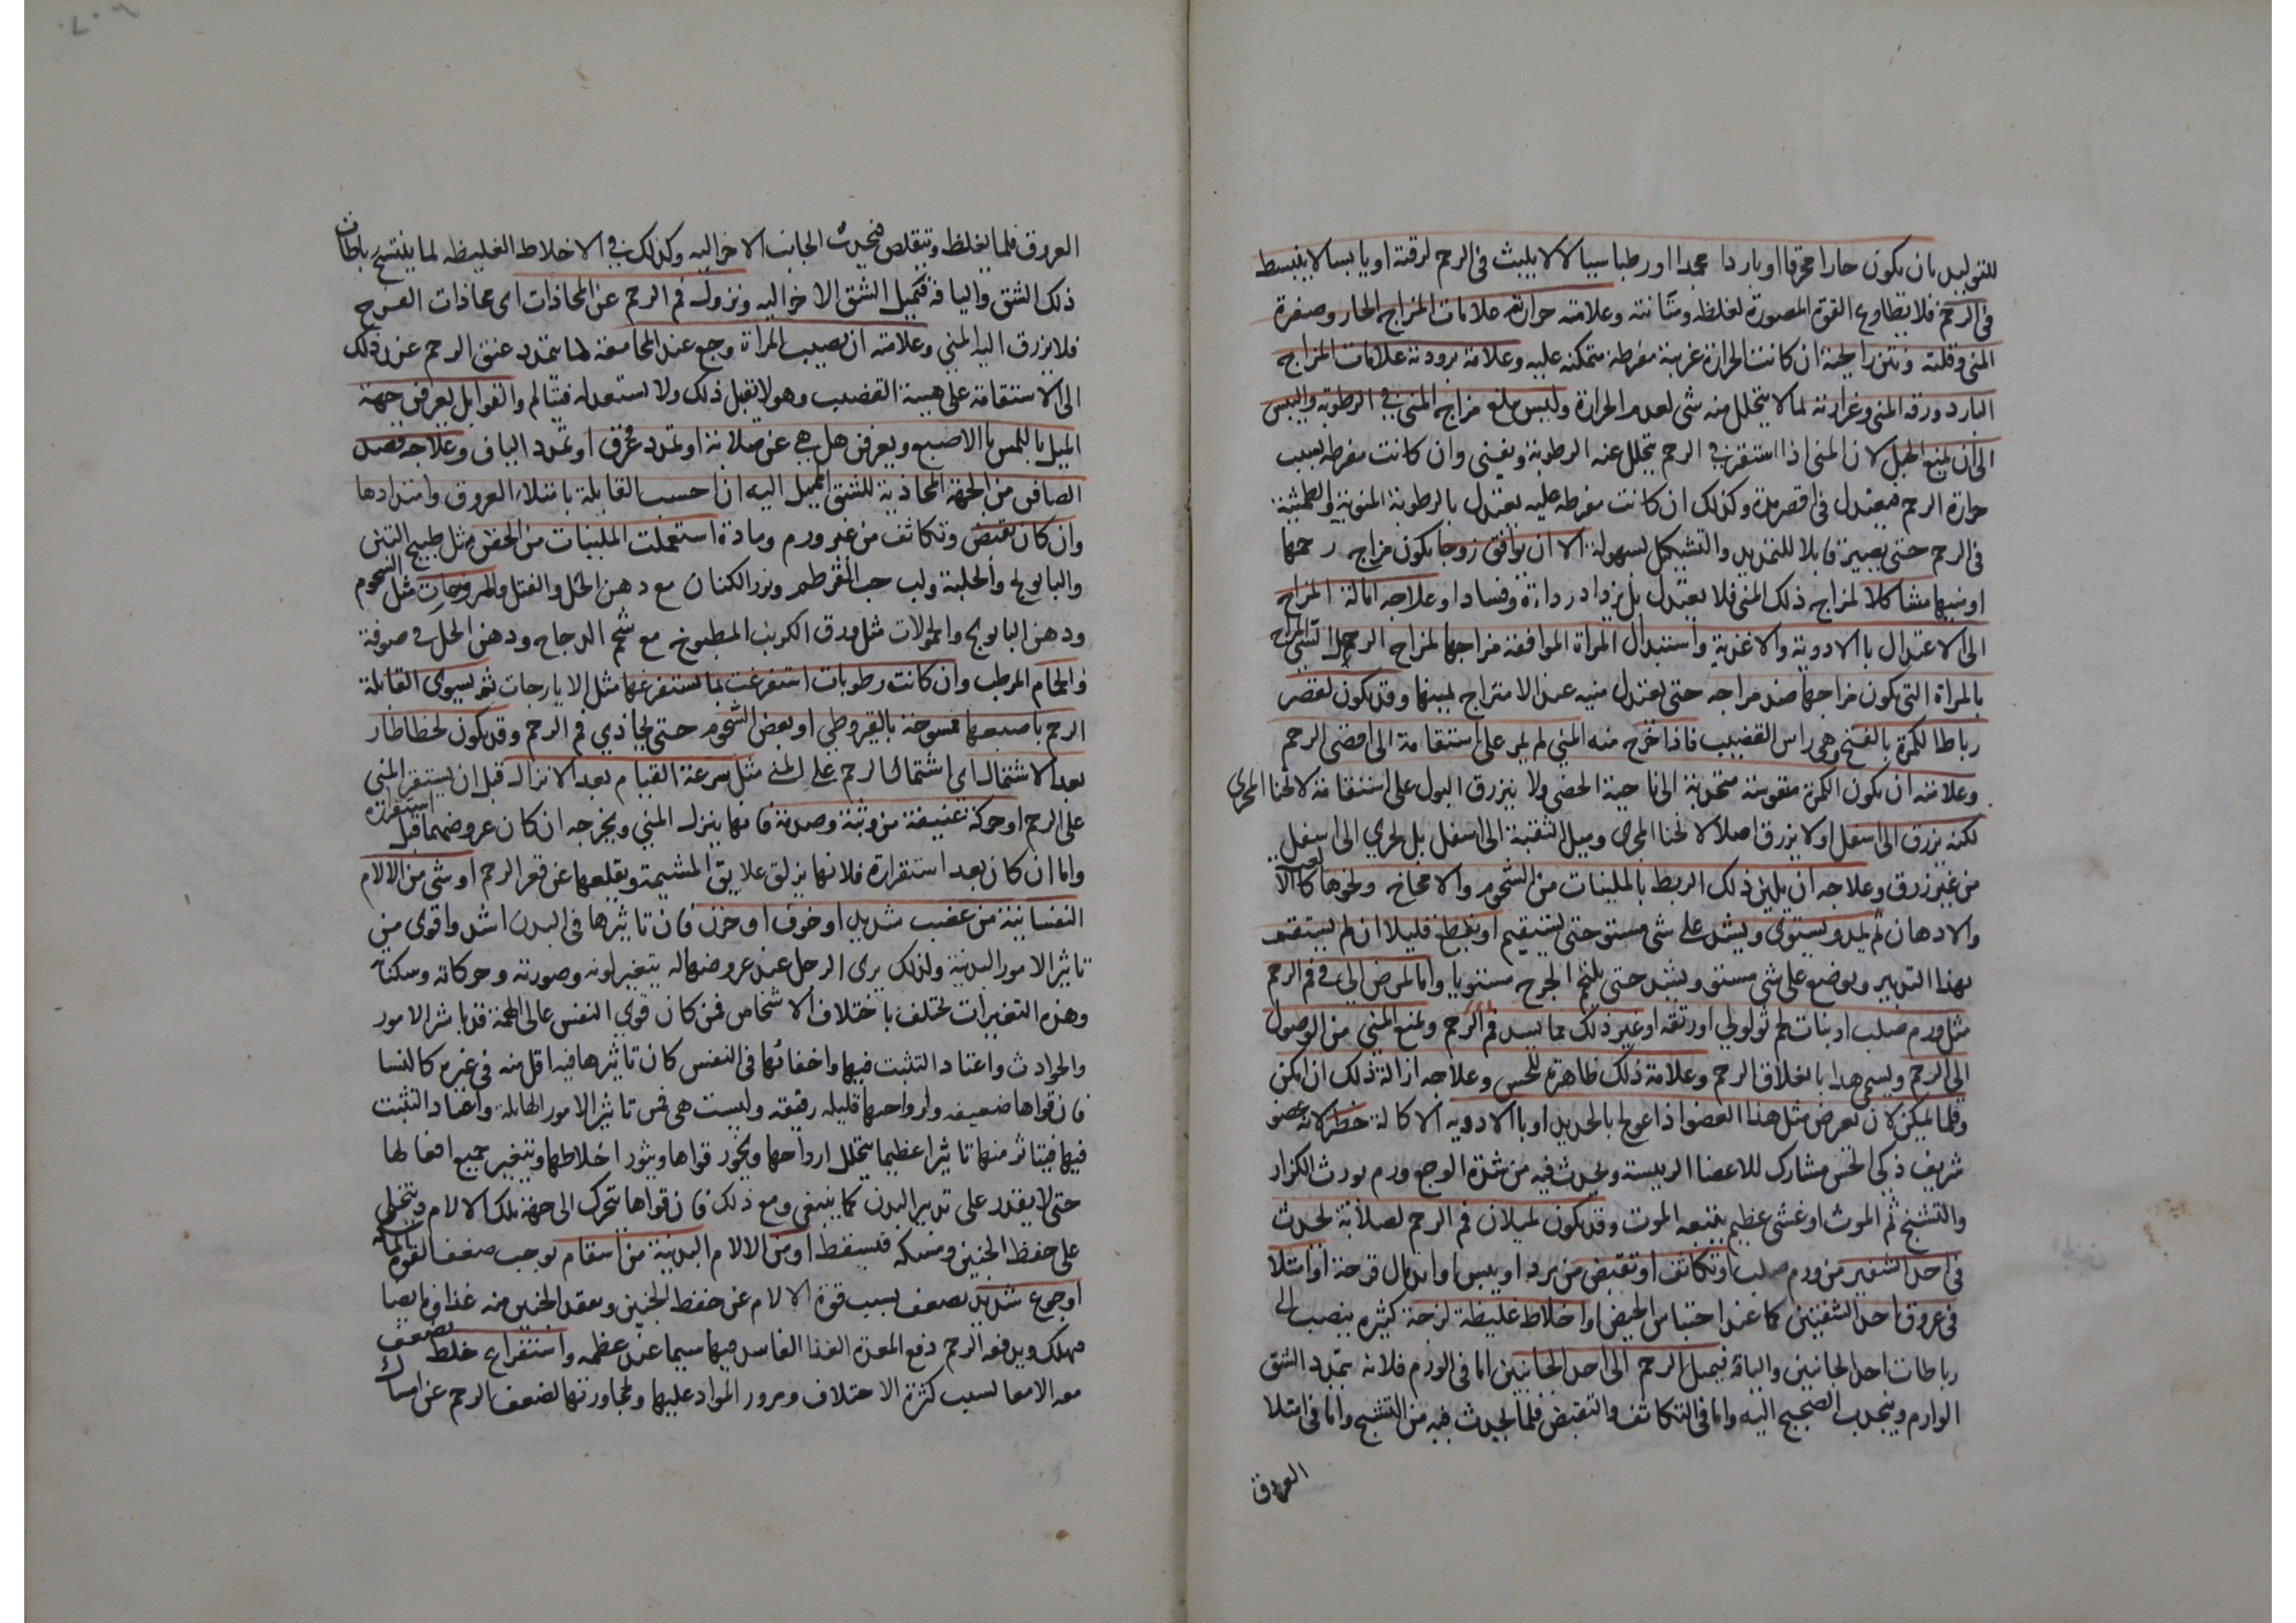 للتوليد بان يكون حارا محرقا او باردا مجمدا او رطبا سيالا لا يلبث في الرحم لرقته او يابسا لا ينبسط
في الرحم فلا يطاوع القوة المصورة لغلظه ومتانته وعلامته حرارته علامات المزاج الحار وصفرة
المني وقلته ونتن رايحته ان كانت الحرارة غريبة مفرطة متمكنه عليه وعلامة برودته علامات المزاج
البارد ورقه المني وغزارته لما لا يتحلل منه شي لعدم الحرارة وليس يبلغ مزاج المني في الرطوبة واليبس
الى ان يمنع الحبل لان المني اذا استقر في الرحم يتحلل عنه الرطوبة ويفنى وان كانت مفرطه بسبب
حرارة الرحم فيعتدل في اقصر مدة وكذلك ان كانت مفرطه عليه يعتدل بالرطوبة المنوية والطمثية
في الرحم حتى يصير قابلا للتمديد والتشكيل بسهولة الا ان يوافق زوجا يكون مزاج رحمها
او منيها مشاكلا لمزاج ذلك المني فلا يعتدل بل يزداد رداءة وفسادا وعلاجه امالة المزاج
الى الاعتدال بالادوية والاغذية واستبدال المراة الموافقة مزاجها لمزاج الرجل المزاج
بالمراة التي يكون مزاجها ضد مزاجه حتى يعتدل منيه عند الامتزاج بمنيها وقد يكون لقصر
رباط الكمرة بالفتح وهي راس القضيب فاذا خرج منه المني لم يمر على استقامة الى اقصى الرحم
وعلامته ان يكون الكمرة مقوسة منحدبة الى ناحية الخصى ولا ينزرق البول على استقامة لانحنا المجرى
لكنه يزرق الى اسفل او لا يزرق اصلا لانحنا المجرى وميل الثقبة الى اسفل بل يجري الى اسفل
من غير زرق وعلاجه ان يلين ذلك الربط بالملينات من الشحوم والامخاخ ونحوها كالالعبة
والادهان ثم يمد ويستوى ويشد على شي مستو حتى يستقيم او يقطع قليلا ان لم يستقم
بهذا التدبير ويوضع على شي مستو ويشد حتى يلتحم الجرح مستويا واما لمرض الى في فم الرحم
مثل ورم صلب او نبات لحم ثولولي او رتقه او غير ذلك مما يسد فم الرحم ويمنع المني من الوصول
الى الرحم ويسمى هذا بانغلاق الرحم وعلامة ذلك ظاهرة للحس وعلاجه ازالة ذلك ان امكن
وقلما يمكن لان تعرض مثل هذا العضو اذا عولج بالحديد او بالادويه الاكالة خطر لانه عضو
شريف ذكي الحس مشارك للاعضا الرييسة ويحدث فيه من شدة الوجع ورم يورث الكزاز
والتشنج ثم الموت او غشي عظيم يتبعه الموت وقد يكون لميلان فم الرحم لصلابة يحدث
في احد الشفير من ورم صلب او تكاثف او تقبض من برد او يبس او اندمال قرحة او امتلا
في عروق احد الشفتين كما عند احتباس الحيض او اخلاط غليظة لزجة كثيرة ينصب الى
رباطات احد الجانبين واليافه فيميل الرحم الى احد الجانبين اما في الورم فلانه يتمدد الشق
الوارم وينجذب الصحيح اليه واما في التكاثف والتقبض فلما يحدث فيه من التشنج واما في امتلا
العروق
العروق فلما يغلظ ويتقلص فينجذب الجانب الاخر اليه وكذلك في الاخلاط الغليظه لما يتشنج رباطات
ذلك الشق واليافه فتميل الشق الاخر اليه ونزول فم الرحم عن المحاذات اى محاذات الفرج
فلا يزرق اليه المني وعلامته ان يصيب المراة وجع عند المجامعة لما يتمدد عنق الرحم عن ذلك
الى الاستقامة على هيية القضيب وهو لا يقبل ذلك ولا يستعد له فيتالم والقوابل يعرفن جهة
الميل باللمس بالاصبع ويعرفن هل هي عن صلابة او تمدد عروق او تمدد الياف وعلاجه فصد
الصافن من الجهة المحاذية للشق المميل اليه ان احست القابلة بامتلاء العروق وامتدادها
وان كان تقبض وتكاثف من غير ورم ومادة استعملت الملينات من الحقن مثل طبيخ التين
والبابونج والحلبة ولب حب القرطم وبزر الكتان مع دهن الخل والفتل والمروخات مثل الشحوم
ودهن البابونج والحمولات مثل ورق الكرنب المطبوخ مع شحم الدجاج ودهن الخل في صوفة
والحمام المرطب وان كانت رطوبات استفرغت بما يستفرغها مثل الايارجات ثم يسوى القابلة
الرحم باصبعها ممسوحة بالقيروطي او بعض الشحوم حتى يحاذي فم الرحم وقد يكون لخطا طار
بعد الاشتمال اى اشتمال الرحم على المني مثل سرعة القيام بعد الانزال قبل ان يستقر المني
على الرحم او حركة عنيفة من وثبة وصدمة فانها ينزل المني ويخرجه ان كان عروضهما قبل استقراره
واما ان كان بعد استقراره فلانها يزلق علايق المشيمة ويقلعها عن قعر الرحم او شي من الالام
النفسانية من غضب شديد او خوف او حزن فان تاثيرها في البدن اشد واقوى من
تاثير الامور البدنية ولذلك يرى الرجل عند عروضها له يتغير لونه وصورته وحركاته وسكناته
وهذه التغيرات تختلف باختلاف الاشخاص فمن كان قوي النفس عالى الهمة قد باشر الامور
والحوادث واعتاد التثبت فيها واخفائها في النفس كان تاثيرها فيه اقل منه في غيره كالنسا
فان قواها ضعيفه وارواحها قليله رقيقه وليست هي من تاثير الامور الهايلة واعتاد التثبت
فيها فيتاثر منها تاثيرا عظيما يتحلل ارواحها ويخور قواها ويثور اخلاطها ويتغير جميع افعالها
حتى لا يقدر على تدبير البدن كما ينبغي ومع ذلك فان قواها يتحرك الى جهة تلك الالام ويتخلى
على حفظ الجنين ومسكه فيسقط او من الالام البدنية من اسقام يوجب ضعف القوة الماسكة
او جوع شديد يضعف بسبب قوة الالام عن حفظ الجنين ويفقد الجنين منه غذاوه ايضا
فيهلك ويدفعه الرحم دفع المعدة الغذا الفاسد فيها سيما عند عظمه واستفراغ خلط يضعف
معه الامعا بسبب كثرة الاختلاف ومرور المواد عليها ولمجاورتها لضعف الرحم عن امساك